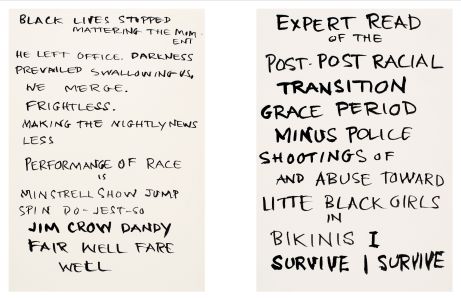 BLACK LIVES STOPPED
MATTERING THE MOM
ENT
HE LEFT OFFICE. DARKNESS
PREVAILED SWALLOWING US,
WE MERGE.
FRIGHTLESS.
MAKING THE NIGHTLY NEWS
LESS
PERFORMANCE OF RACE
IS
MINSTRELL SHOW JUMP
SPIN DO-JEST-SO
JIM CROW DANDY
FAIR WELL FARE
WELL
EXPERT READ
OF THE
POST-POST RACIAL
TRANSITION
GRACE PERIOD
MINUS POLICE
SHOOTINGS OF
AND ABUSE TOWARD
LITTE BLACK GIRLS
IN
BIKINIS I
SURVIVE I SURVIVE